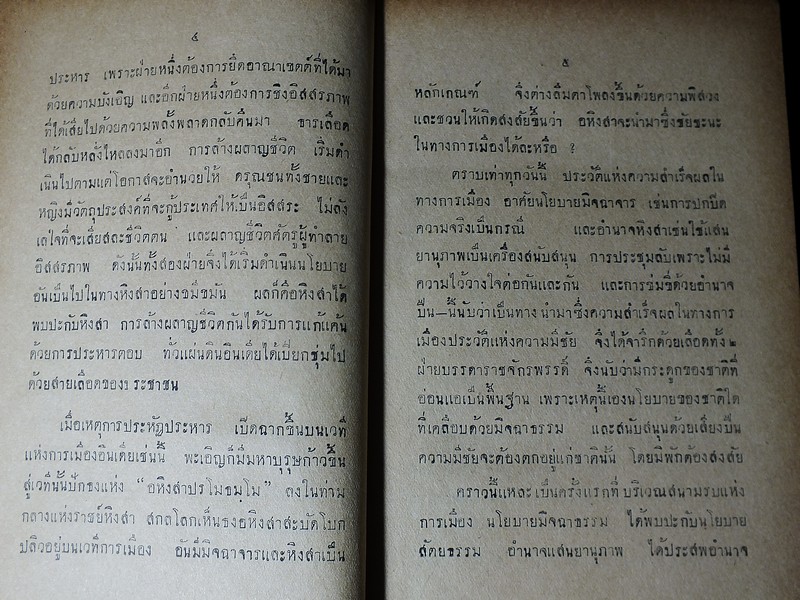 ๔
ประหาร เพราะฝ่ายหนึ่งต้องการยึดอาณาเขตต์ที่ได้มา
ด้วยความบังเอิญ และอีกฝ่ายหนึ่งต้องการซึ่งอิสสรภาพ
ที่ได้เสียไปด้วยความพลั้งพลาดกลับคืนมา ธารเลือด
ได้กลับหลั่งไหลลงมาอีก การล้างผลาญชีวิต เริ่มดำ
เนินไปตามแต่โอกาสจะอำนวยให้ ดรุณชนทั้งชายและ
หญิงมีวัตถุประสงค์ที่จะกู้ประเทศให้เป็นอิสสระ ไม่ลัง
เลใจที่จะเสียสละชีวิตตน และผลาญชีวิตศัตรูผู้ทำลาย
อิสสรภาพ ดังนั้นทั้งสองฝ่ายจึ่งได้เริ่มดำเนินนโยบาย
อันเป็นไปในทางหิงสาอย่างขมีขมัน ผลก็คือหิงสาได้
พบปะกับหิงสา การล้างผลาญชีวิตกันได้รับการแก้แค้น
ด้วยการประหารตอบ ทั่วแผ่นดินอินเดียได้เปียกชุ่มไป
ด้วยสายเลือดของประชาชน
เมื่อเหตุการประหัฏประหาร เปิดฉากขึ้นบนเวที
แห่งการเมืองอินเดียเช่นนี้ พะเอิญก็มีมหาบุรุษก้าวขึ้น
สู่เวทีนั้นปักธงแห่ง “อหิงสาปรโมธมโม” ลงในท่าม
กลางแห่งราชย์หิงสา สกลโลกเห็นธงอหิงสาสะบัดโบก
ปลิวอยู่บนเวทีการเมือง อันมีมิจฉาจารและหิงสาเป็น
๕
หลักเกณฑ์ จึ่งต่างลืมตาโพลงขึ้นด้วยความพิสวง
และชวนให้เกิดสงสัยขึ้นว่า อหิงสาจะนำมาซึ่งชัยชะนะ
ในทางการเมืองได้ละหรือ ?
ตราบเท่าทุกวันนี้ ประวัติแห่งความสำเร็จผลใน
ทางการเมือง อาศัยนโยบายมิจฉาจาร เช่นการปกปิด
ความจริงเป็นกรณี และอำนาจหิงสาเช่นใช้แสน
ยานุภาพเป็นเครื่องสนับสนุน การประชุมลับเพราะไม่มี
ความไว้วางใจต่อกันและกัน และการข่มขี่ด้วยอำนาจ
ปืน—นี้นับว่าเป็นทางนำมาซึ่งความสำเร็จผลในทางการ
เมืองประวัติแห่งความมีชัย จึ่งได้จารึกด้วยเลือดทั้ง ๒
ฝ่ายบรรดาราชจักรพรรดิ์ จึ่งนับว่ามีกระดูกของชาติที่
อ่อนแอเป็นพื้นฐาน เพราะเหตุนี้เองนโยบายของชาติใด
ที่เคลือบด้วยมิจฉาธรรม และสนับสนุนด้วยเสียงปืน
ความมีชัยจะต้องตกอยู่แก่ชาตินั้น โดยมิพักต้องสงสัย
คราวนี้แหละเป็นครั้งแรกที่บริเวณสนามรบแห่ง
การเมือง นโยบายมิจฉาธรรม ได้พบปะกับนโยบาย
สัตยธรรม อำนาจแสนยานุภาพ ได้ประสพอำนาจ